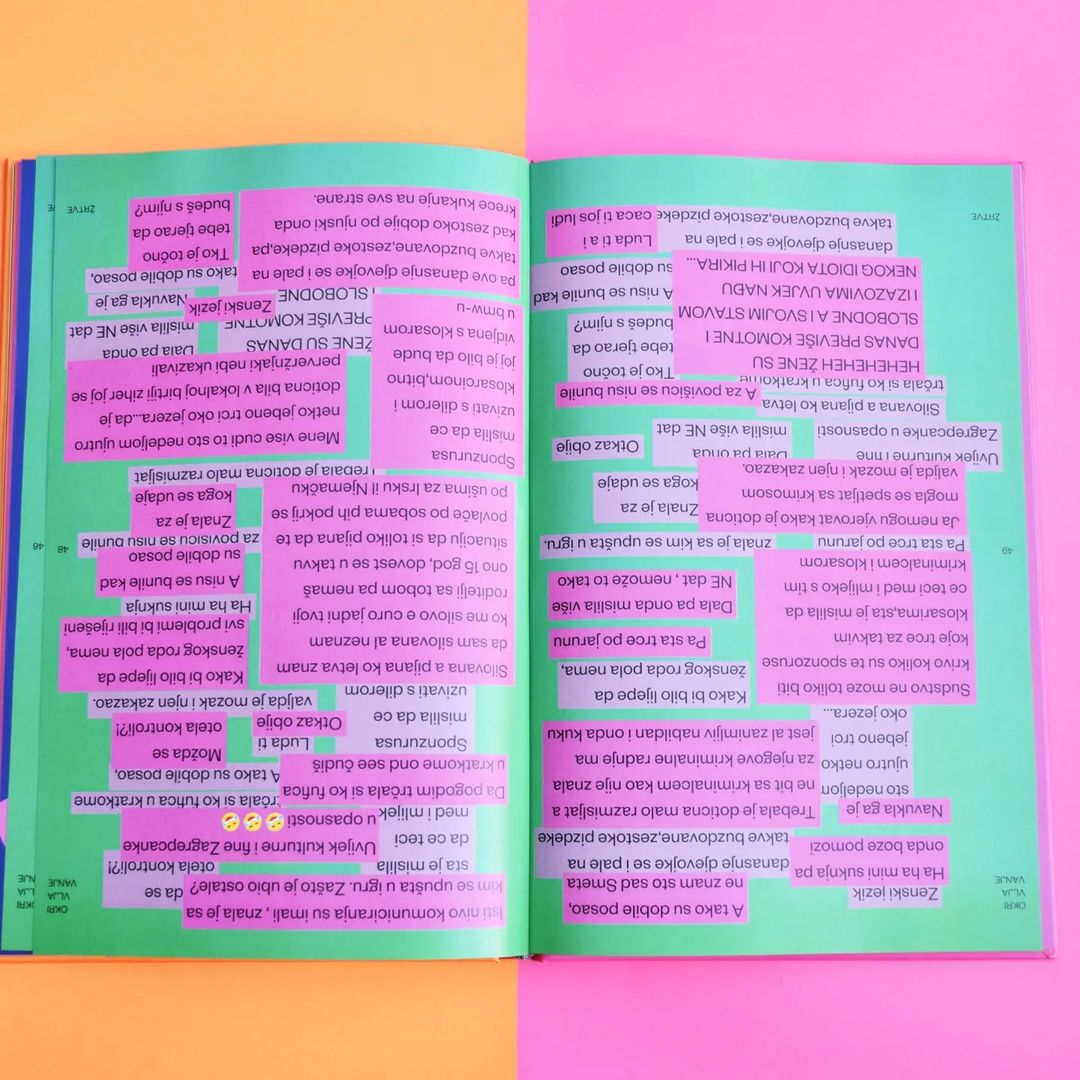 OKRI
VLJA
VANJE
Ženski jezik
A tako su dobile posao,
ne znam sto sad Smeta
Ha ha mini suknja pa
onda boze pomozi
danasnje djevojke se i pale na
takve buzdovane,zestoke pizdeke
Navukla ga je
sto nedeljom
ujutro netko
jebeno trci
oko jezera...
Trebala je doticna malo razmisljat a
ne bit sa kriminalcem kao nije znala
za njegove kriminalne radnje ma
jest al zanimljiv nabildan i onda kuku
Sudstvo ne moze toliko biti
krivo koliko su te sponzoruse
koje trce za takvim
klosarima,sta je mislila da
ce teci med i mlijeko s tim
kriminalcem i klosarom
Kako bi bilo lijepe da
ženskog roda pola nema,
Pa sta trce po jarunu
Dala pa onda mislila više
NE dat , nemože to tako
Pa sta trce po jarunu
znala je sa kim se upušta u igru.
49
Ja nemogu vjerovat kako je doticna
mogla se spetljat sa krimosom
valjda je mozak i njen zakazao.
Znala je za
koga se udaje
Uvijek kulturne i fine
Zagrepcanke u opasnosti
Dala pa onda
mislila više NE dat
Otkaz obije
Silovana a pijana ko letva
trčala si ko fufica u kratkome
A za povišicu nisu se bunile
HEHEHEHEHEH ŽENE SU
DANAS PREVIŠE KOMOTNE I
SLOBODNE A I SVOJIM STAVOM
I IZAZOVIMA UVJEK NAĐU
NEKOG IDIOTA KOJI IH PIKIRA...
Tko je točno
tebe tjerao da
budeš s njim?
A nisu se bunile kad
su dobile posao
Luda ti a i
caca ti jos luđi
danasnje djevojke se i pale na
takve buzdovane,zestoke pizdeke
ŽRTVE
OKRI
VLJA
VANJE
Isti nivo komuniciranja su imali , znala je sa
kim se upušta u igru. Zašto je ubio ostale?
da se
otela kontroli?!
sta je mislila
da ce teci
med i mlijek
Uvijek kulturne i fine Zagrepcanke
u opasnosti
trčala si ko fufica u kratkome
Da pogodim trčala si ko fufica
u kratkome ond see čudiš
A tako su dobile posao,
Možda se
otela kontroli?!
Luda ti
Otkaz obije
Sponzurusa
mislila da ce
uzivati s dilerom
valjda je mozak i njen zakazao.
Silovana a pijana ko letva znam
da sam silovana al neznam
ko me silovo e curo jadni tvoji
roditelji sa tobom pa nemaš
ono 15 god, dovest se u takvu
situaciju da si toliko pijana da te
povlače po sobama pih pokrij se
po ušima pa za Irsku il Njemačku
Kako bi bilo lijepe da
ženskog roda pola nema,
svi problemi bi bili riješeni
Ha ha mini suknja
A nisu se bunile kad
su dobile posao
za povisicu se nisu bunile
48
Znala je za
koga se udaje
Trebala je doticna malo razmisljat
Sponzurusa
mislila da ce
uzivati s dilerom i
klosarcinom,bitno
joj je bilo da bude
vidjena s klosarom
u bmw-u
Mene vise cudi to sto nedeljom ujutro
netko jebeno trci oko jezera...da je
doticna bila v lokalnoj birtiji ziher joj se
perveržnjaki nebi ukazivali
Dala pa onda
mislila više NE dat
ŽENE SU DANAS
PREVIŠE KOMOTNE
I SLOBODNE
Ženski jezik
Navukla ga je
tako su dobile posao,
Tko je točno
tebe tjerao da
budeš s njim?
pa ove danasnje djevojke se i pale na
takve buzdovane,zestoke pizdeke,pa
kad zestoko dobije po njuski onda
krece kukanje na sve strane.
ŽRTVE
OKRI
VLJA
VANJE
46